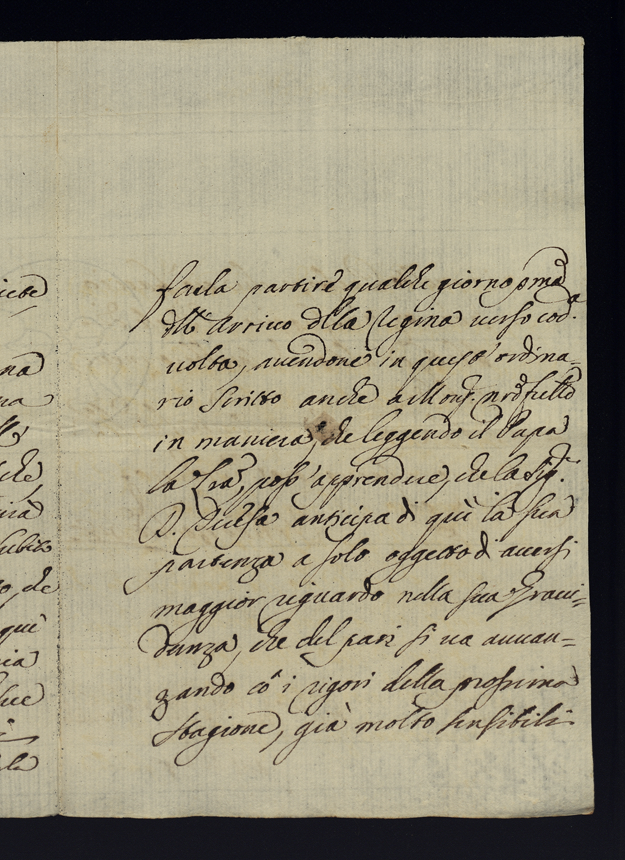 farla partire qualche giorno pma
dell'Arrivo della Regina verso cod.a
volta, avendone in quest'ordina-
rio scritto anche a Mons.r nro fr̃ello
in maniera, che leggendo il Papa
la tra, poss'apprendere, che la Sig.ra
D. anticipa di quì la sua
partenza a solo oggetto di aversi
maggior riguardo nella sua Gravi-
danza, che del pari si va avvan-
zando cõ i rigori della prossima
Stagione, già molto sensibili